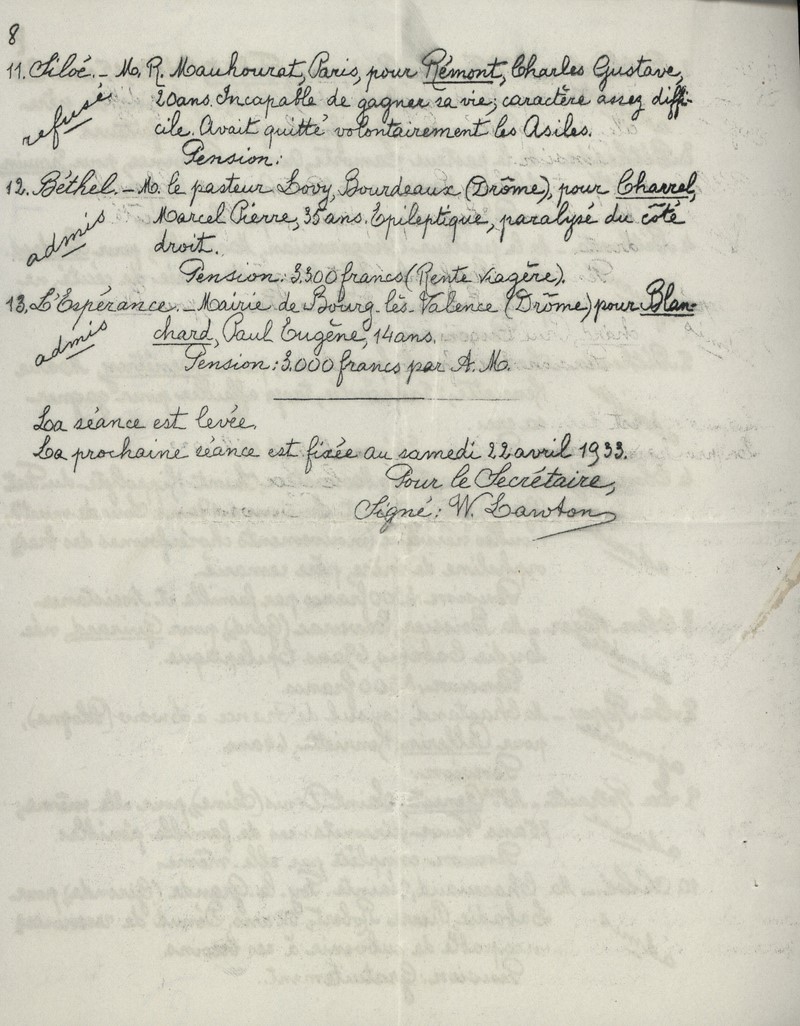 8
11. Siloé. - M. R. Mauhourat, Paris, pour Rémont, Charles Gustave,
refusé
20 ans. Incapable de gagner sa vie; caractère assez diffi-
cile. Avait quitté volontairement les Asiles.
Pension:
12. Béthel. - M. le pasteur Lovy, Bourdeaux (Drôme), pour Charrel,
admis
Marcel Pierre, 35 ans. Epileptique, paralysé du côté
droit.
Pension: 3.300 francs (Rente viagère).
13. L'Espérance. - Mairie de Bourg-lès-Valence (Drôme) pour Blan-
admis
chard, Paul Eugène, 14 ans.
Pension: 3.000 francs par A. M.
La séance est levée.
La prochaine séance est fixée au samedi 22 avril 1933.
Pour le Secrétaire,
Signé: W. Lawton